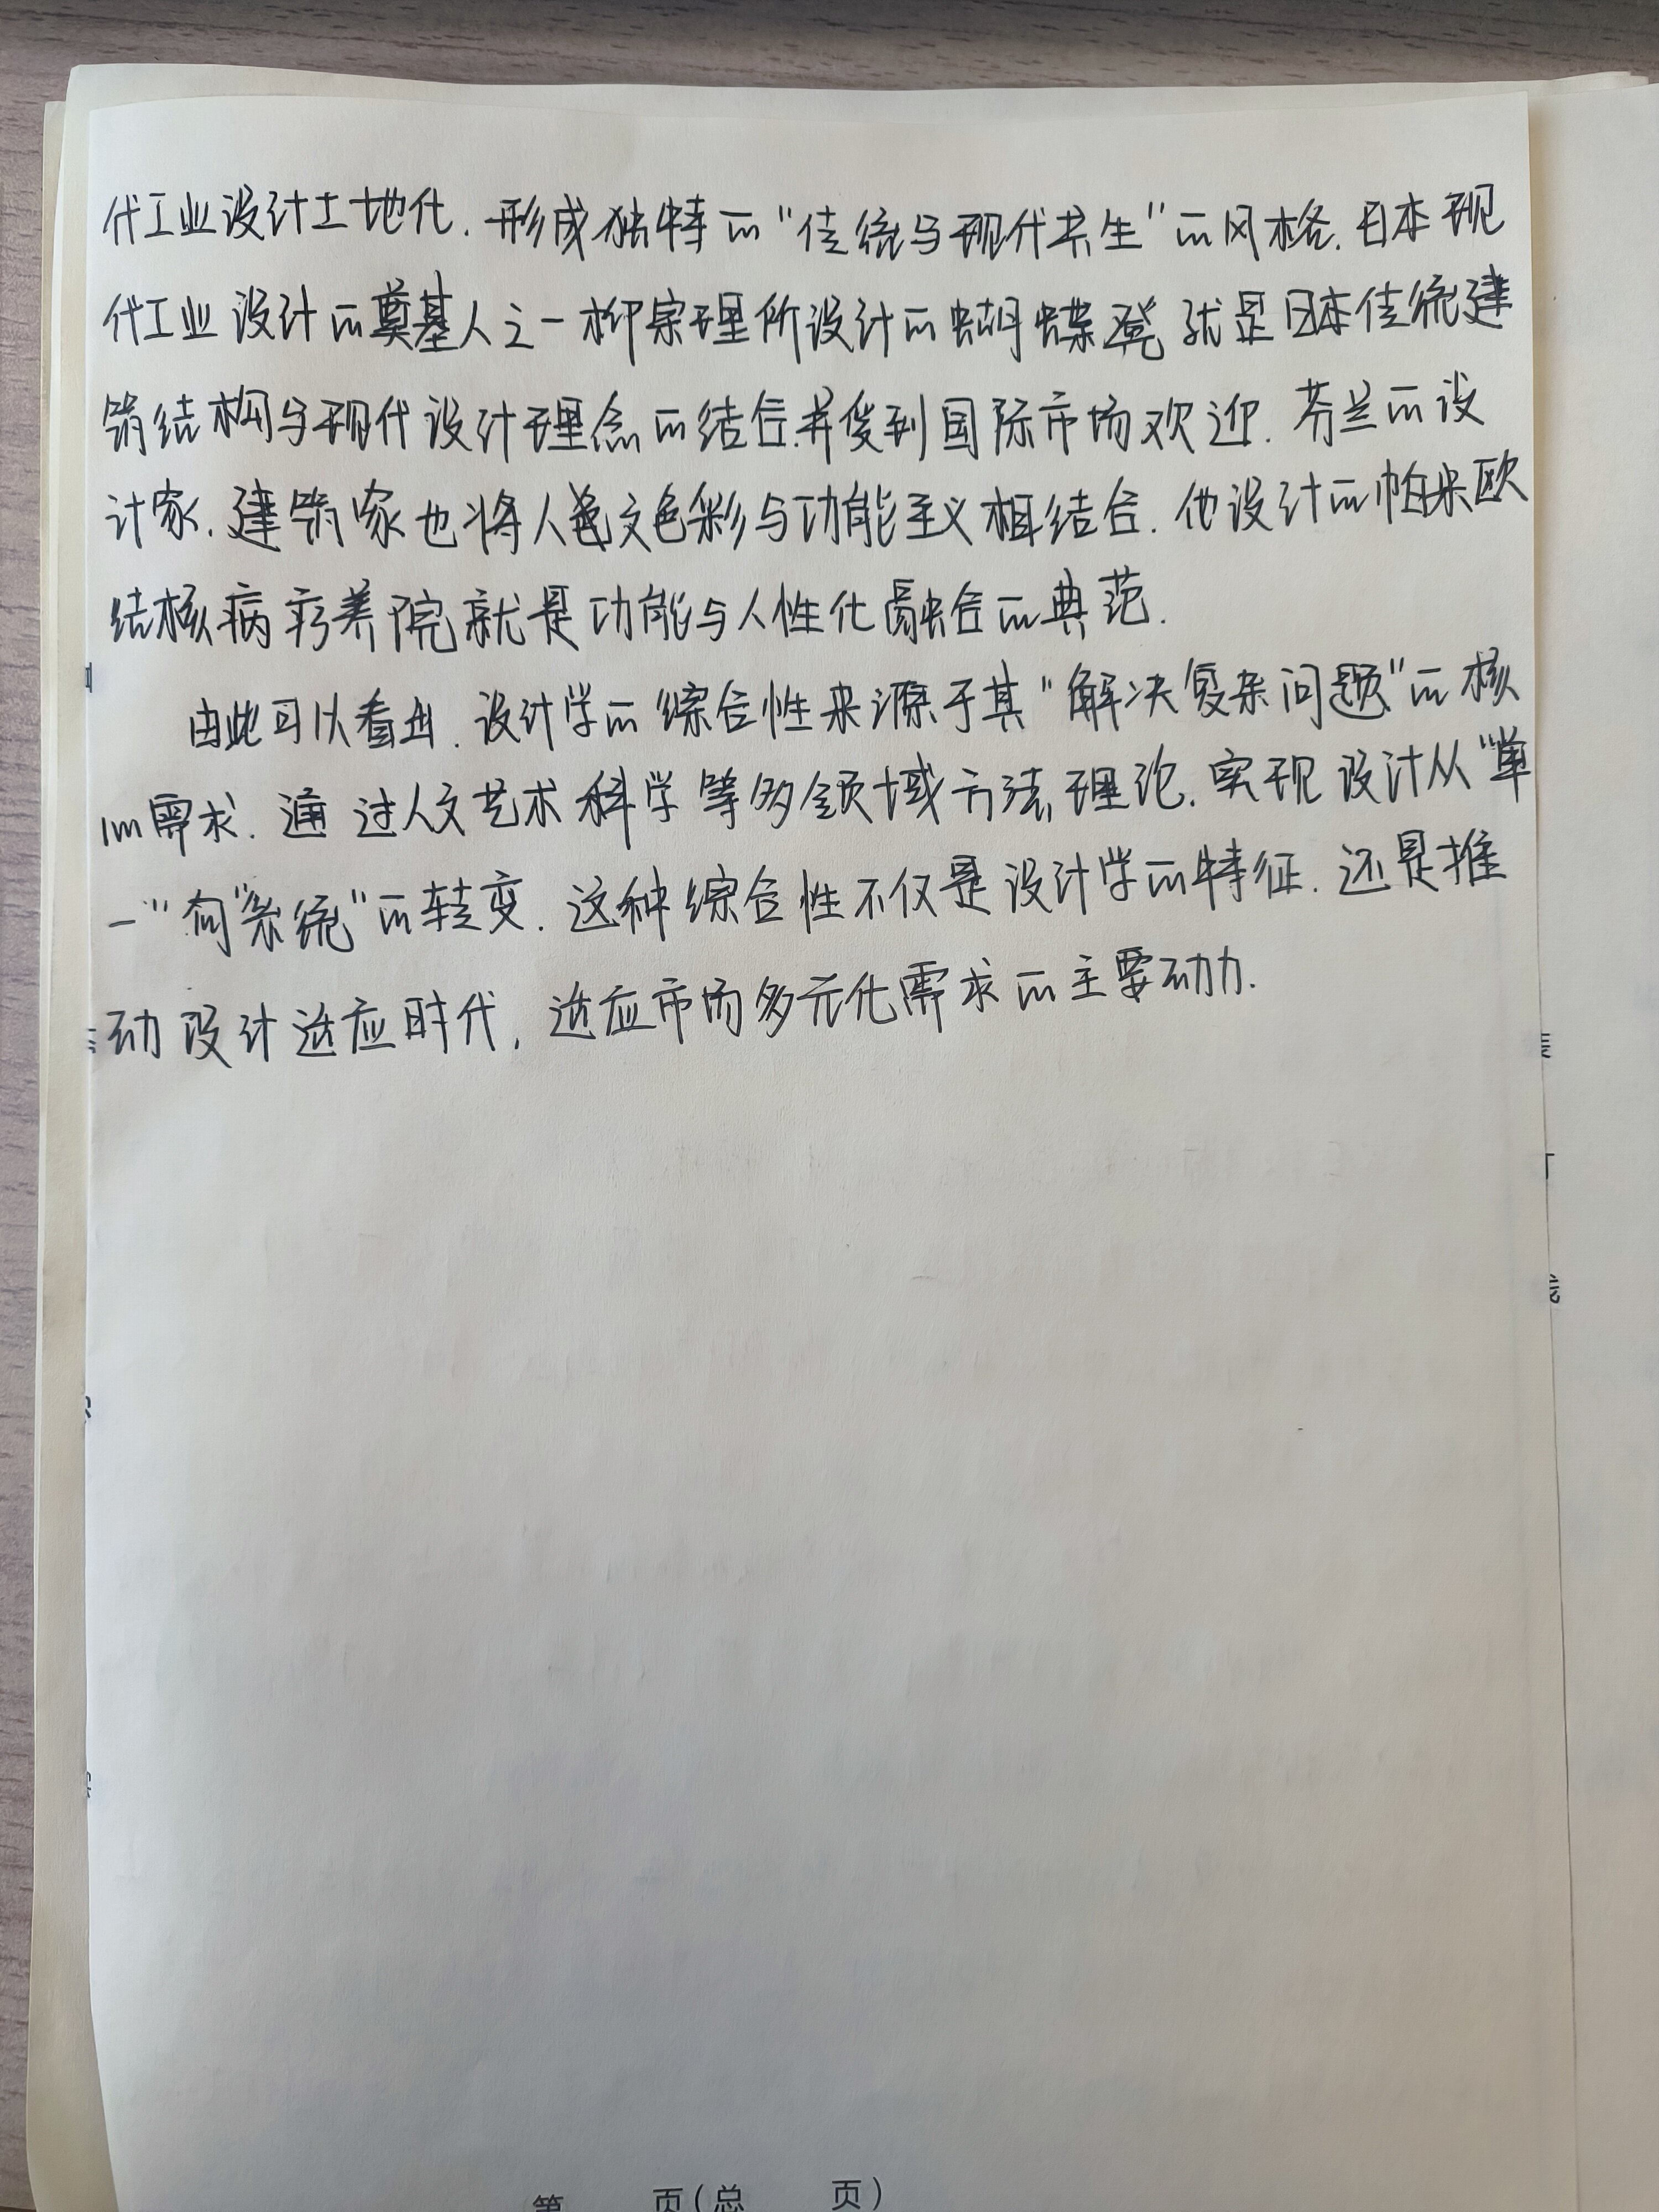 代工业设计土地化.形成独特的“传统与现代共生”的风格.日本现
代工业设计的奠基人之一柳宗理所设计的蝴蝶凳就是日本传统建
筑结构与现代设计理念的结合.并受到国际市场欢迎.芬兰的设
计家.建筑家也将人文色彩与功能主义相结合.他设计的帕米欧
结核病疗养院就是功能与人性化融合的典范.
由此可以看出.设计学的综合性来源于其“解决复杂问题”的核
心需求.通过人文艺术科学等多领域方法理论.实现设计从“单
一”向“系统”的转变.这种综合性不仅是设计学的特征.还是推
动设计适应时代,适应市场多元化需求的主要动力.
第 页(总 页)